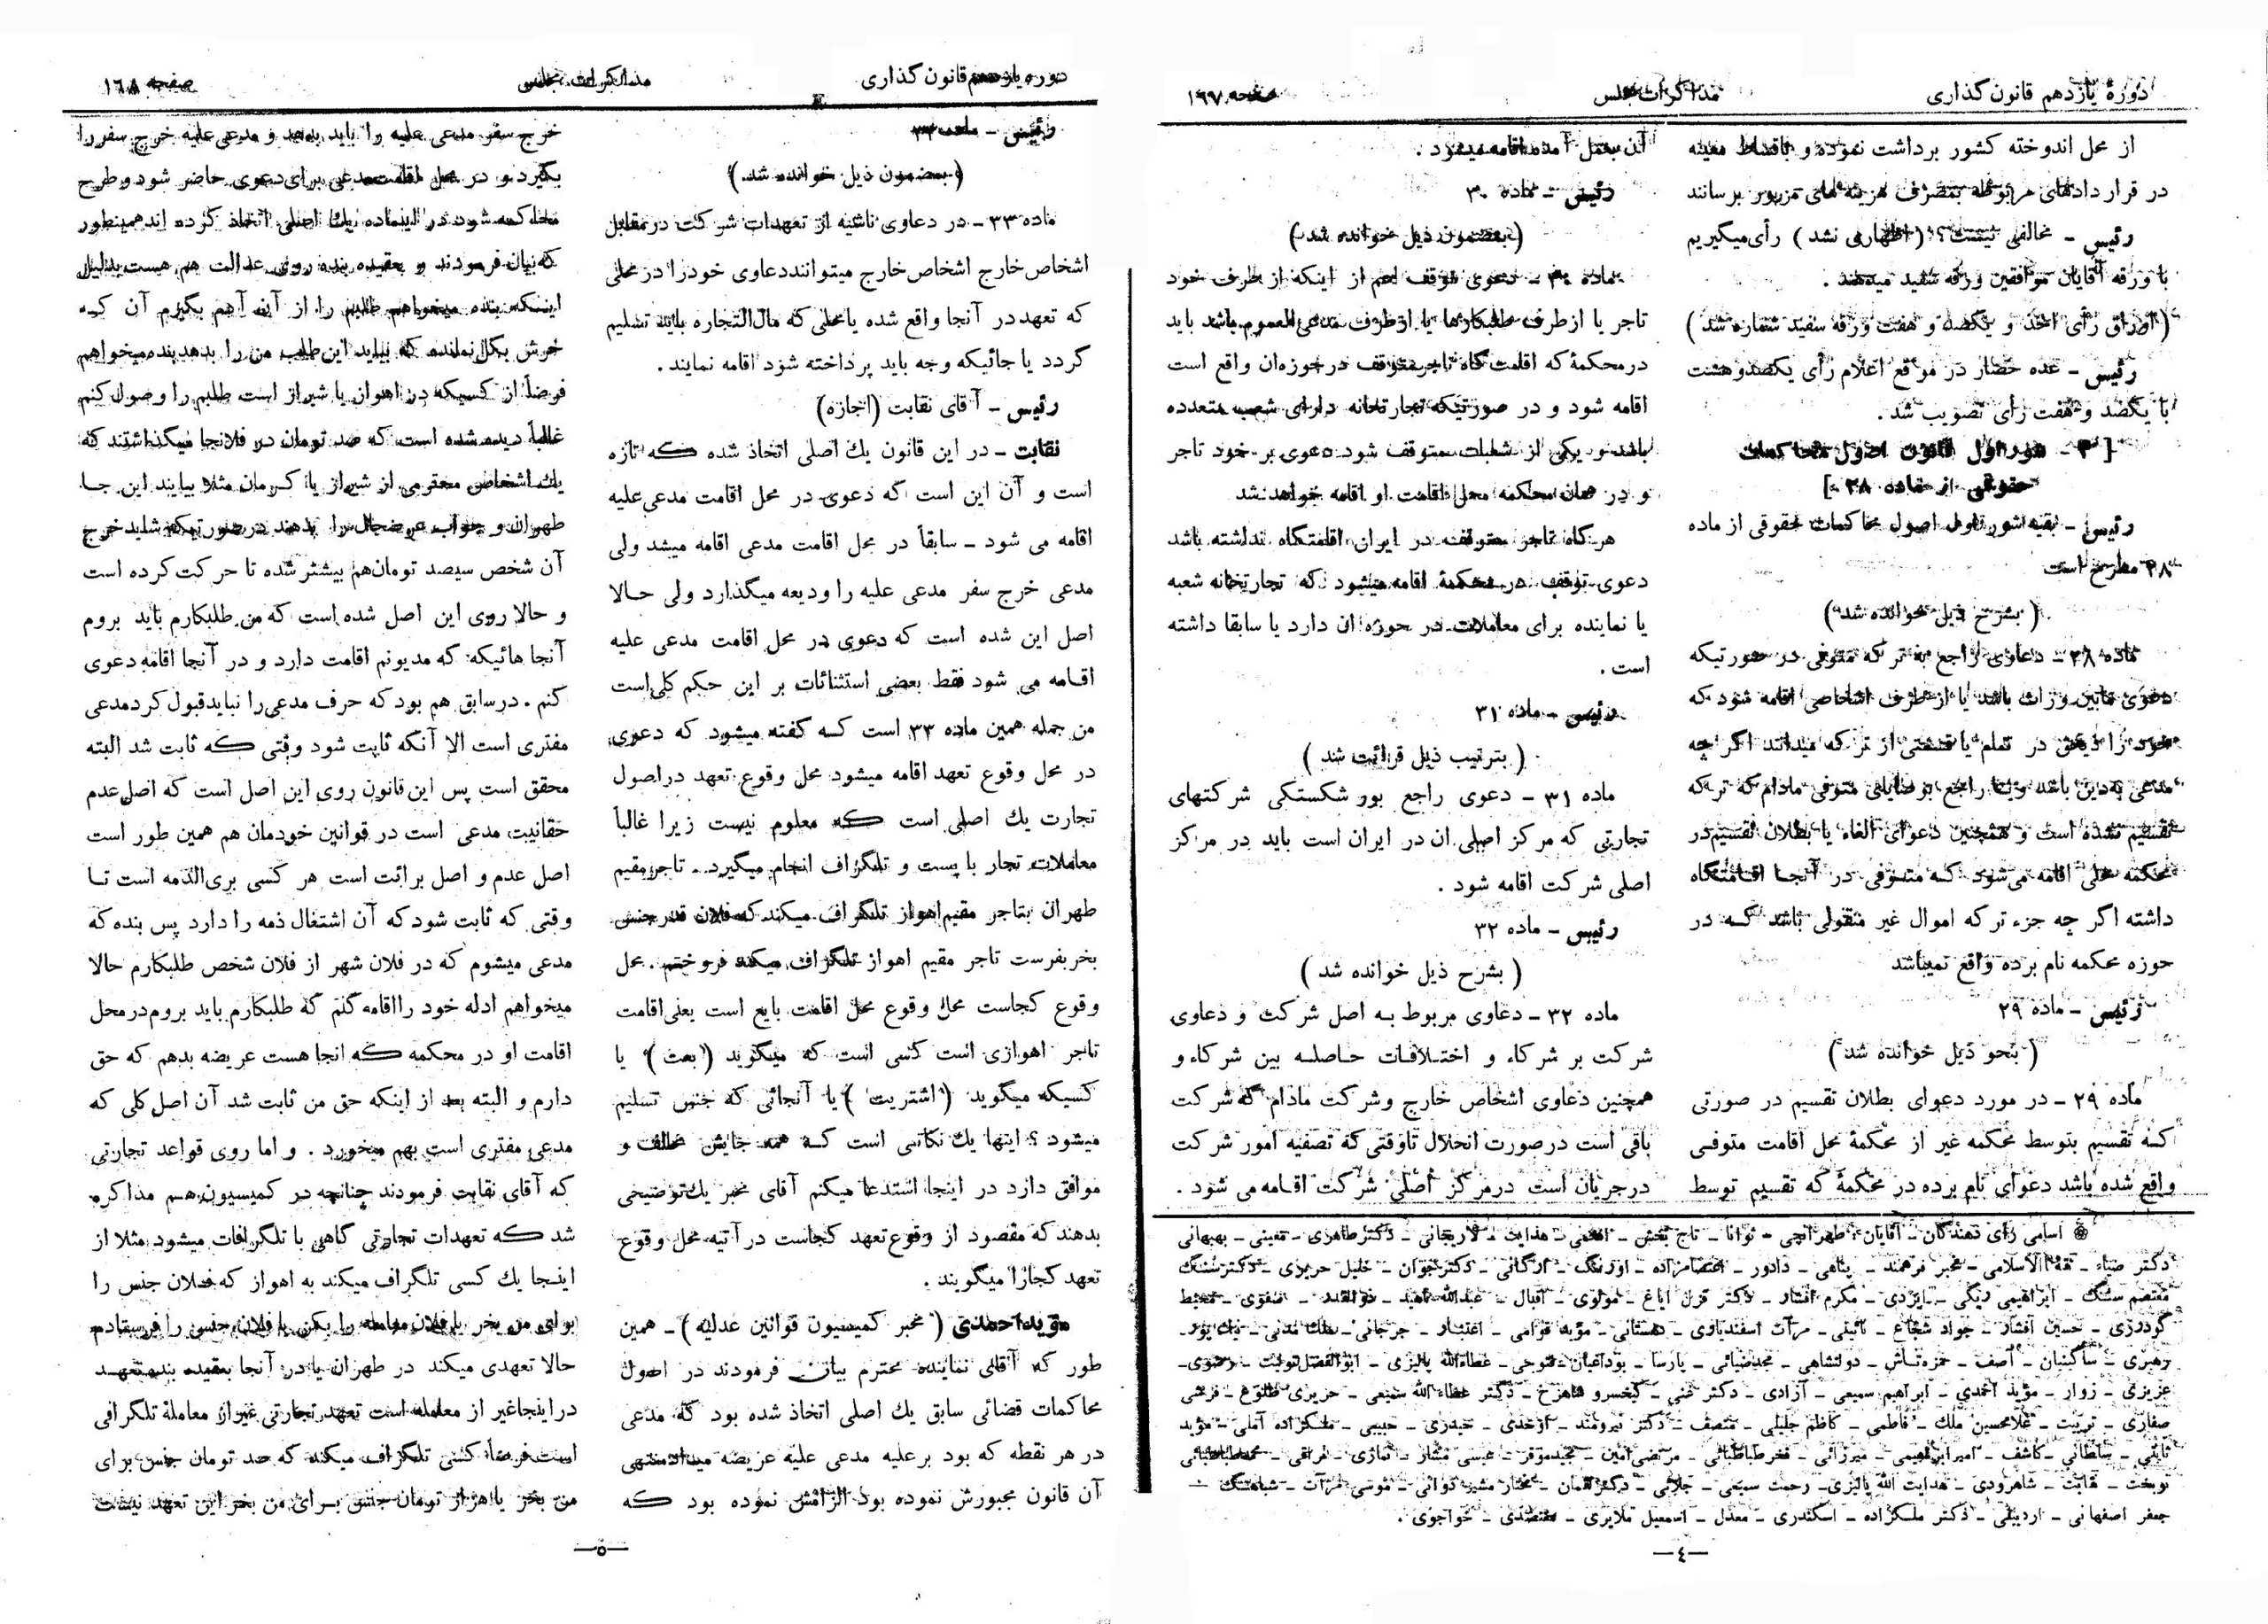 دوره یازدهم قانون گذاری
مذاکرات مجلس
صفحه ۱۶۷
از محل اندوخته کشور برداشت نموده و باقساط معینه
در قرار دادهای مربوطه بمصرف هزینه های مزبور برسانند
رئیس ـ مخالفی نیست؟ (اظهاری نشد) رأی میگیریم
با ورقه آقایان موافقین ورقه سفید میدهند .
(اوراق رأی اخذ و یکصد و هفت ورقه سفید شماره شد)
رئیس ـ عده حضار در موقع اعلام رأی یکصد و هشت
با یکصد و هفت رأی تصویب شد .
[ ۳ ـ شور اول قانون اصول محاکمات
حقوقی از ماده ۲۸ ]
رئیس ـ بقیه شور اول اصول محاکمات حقوقی از ماده
۲۸ مطرح است
( بشرح ذیل خوانده شد )
ماده ۲۸ ـ دعاوی راجع به ترکه متوفی در صورتیکه
دعوی مابین وراث باشد یا از طرف اشخاصی اقامه شود که
خود را ذیحق در تمام یا قسمتی از ترکه میدانند اگر چه
مدعی به دین باشد و یا راجع بوصایای متوفی مادام که ترکه
تقسیم نشده است و همچنین دعوای الغاء یا بطلان تقسیم در
محکمه محلی اقامه می‌شود که متوفی در آنجا اقامتگاه
داشته اگر چه جزء ترکه اموال غیر منقولی باشد که در
حوزه محکمه نام برده واقع نمیباشد
رئیس ـ ماده ۲۹
( بنحو ذیل خوانده شد )
ماده ۲۹ ـ در مورد دعوای بطلان تقسیم در صورتی
که تقسیم بتوسط محکمه غیر از محکمهٔ محل اقامت متوفی
واقع شده باشد دعوای نام برده در محکمهٔ که تقسیم توسط
آن بعمل آمده اقامه میشود .
رئیس ـ ماده ۳۰
(بمضمون ذیل خوانده شد)
ماده ۳۰ ـ دعوی توقف اعم از اینکه از طرف خود
تاجر یا از طرف طلبکارها یا از طرف مدعی العموم باشد باید
در محکمهٔ که اقامت گاه تاجر متوقف در حوزه‌ان واقع است
اقامه شود و در صورتیکه تجارتخانه دارای شعب متعدده
باشد و یکی از شعبات متوقف شود دعوی بر خود تاجر
و در همان محکمه محل اقامت او اقامه خواهد شد
هر گاه تاجر متوقف در ایران اقامتگاه نداشته باشد
دعوی توقف در محکمهٔ اقامه میشود که تجارتخانه شعبه
یا نماینده برای معاملات در حوزه ان دارد یا سابقا داشته
است .
رئیس ـ ماده ۳۱
( بترتیب ذیل قرائت شد )
ماده ۳۱ ـ دعوی راجع بور شکستگی شرکتهای
تجارتی که مرکز اصلی ان در ایران است باید در مرکز
اصلی شرکت اقامه شود .
رئیس ـ ماده ۳۲
( بشرح ذیل خوانده شد )
ماده ۳۲ ـ دعاوی مربوط به اصل شرکت و دعاوی
شرکت بر شرکاء و اختلافات حاصله بین شرکاء و
همچنین دعاوی اشخاص خارج و شرکت مادام که شرکت
باقی است در صورت انحلال تا وقتی که تصفیه امور شرکت
در جریان است در مرکز اصلی شرکت اقامه می شود .
اسامی رأی دهندگان ـ آقایان : طهرانچی ـ توانا ـ تاج بخش ـ اعظمی ـ هدایت ـ لاریجانی ـ دکتر طاهری ـ معینی ـ بهبهانی
دکتر ضیاء ـ ثقة الاسلامی ـ مخبر فرهمند ـ پناهی ـ دادور ـ اعتصام‌زاده ـ اورنگ ـ ارگانی ـ دکتر جوان ـ خلیل حریری ـ دکتر سنگ
معتصم سنگ ـ ابراهیمی ریگی ـ ایزدی ـ مکرم افشار ـ دکتر قزل ایاغ ـ مولوی ـ اقبال ـ عبدالله ـ صفوی ـ محیط
گودرزی ـ حسین افشار ـ جواد شجاع ـ نائینی ـ مرآت اسفندیاری ـ دهستانی ـ مؤید قوامی ـ افتخار ـ جرجانی ـ ملک مدنی ـ نیک پور ـ
رهبری ـ ساگینیان ـ آصف ـ حمزه تاش ـ دولتشاهی ـ مجد ضیائی ـ پارسا ـ بوداغیان ـ فتوحی ـ عطاءالله پالیزی ـ ابوالفضل تولیت ـ رضوی ـ
عزیزی ـ زوار ـ مؤید احمدی ـ ابراهیم سمیعی ـ آزادی ـ دکتر غنی ـ کیخسرو شاهرخ ـ دکتر عطاءالله سمیعی ـ حریری طلوع ـ فرشی
صفاری ـ تربیت ـ غلامحسین ملک ـ فاطمی ـ کاظم جلیلی ـ منصف ـ دکتر نیرومند ـ اوحدی ـ حیدری ـ حبیبی ـ ملکزاده آملی ـ مؤید
ثابتی ـ سلطانی ـ کاشف ـ امیر ابراهیمی ـ میرزائی ـ فخر طباطبائی ـ مرتضی امین ـ مجید موقر ـ عیسی مشار ـ نمازی ـ عراقی ـ محمد طباطبائی
نوبخت ـ نقابت ـ شاهرودی ـ هدایت الله پالیزی ـ رحمت سمیعی ـ جلائی ـ دکتر لقمان ـ مختار ـ مشیر دوانی ـ موسی مرآت ـ شباهنگ ـ
جعفر اصفهانی ـ اردبیلی ـ دکتر ملکزاده ـ اسکندری ـ معدل ـ اسمعیل ملایری ـ مقتصدی ـ خواجوی .
—٤—
دوره یازدهم قانون گذاری
مذاکرات مجلس
صفحه ۱۶۸
رئیس ـ ماده ۳۳
( بمضمون ذیل خوانده شد )
ماده ۳۳ ـ در دعاوی ناشیه از تعهدات شرکت در مقابل
اشخاص خارج اشخاص خارج میتوانند دعاوی خود را در محلی
که تعهد در آنجا واقع شده یا محلی که مال التجاره باید تسلیم
گردد یا جائیکه وجه باید پرداخته شود اقامه نمایند .
رئیس ـ آقای نقابت (اجازه)
نقابت ـ در این قانون یك اصلی اتخاذ شده که تازه
است و آن این است که دعوی در محل اقامت مدعی علیه
اقامه می شود ـ سابقاً در محل اقامت مدعی اقامه میشد ولی
مدعی خرج سفر مدعی علیه را ودیعه میگذارد ولی حالا
اصل این شده است که دعوی در محل اقامت مدعی علیه
اقامه می شود فقط بعضی استثنائات بر این حکم کلی است
من جمله همین ماده ۳۳ است که گفته میشود که دعوی
در محل وقوع تعهد اقامه میشود محل وقوع تعهد در اصول
تجارت یك اصلی است که معلوم نیست زیرا غالباً
معاملات تجار با پست و تلگراف انجام میگیرد ـ تاجر مقیم
طهران بتاجر مقیم اهواز تلگراف میکند که فلان قدر جنس
بخر بفرست تاجر مقیم اهواز تلگراف میکند فروختم . محل
وقوع کجاست محل وقوع محل اقامت بایع است یعنی اقامت
تاجر اهوازی است کسی است که میگوید (بعت) یا
کسیکه میگوید (اشتریت) یا آنجائی که جنس تسلیم
میشود ؟ اینها یك نکاتی است که همه جایش مخالف و
موافق دارد در اینجا استدعا میکنم آقای مخبر یك توضیحی
بدهند که مقصود از وقوع تعهد کجاست در آتیه محل وقوع
تعهد کجا را میگویند .
مؤید احمدی ( مخبر کمیسیون قوانین عدلیه ) ـ همین
طور که آقای نماینده محترم بیان فرمودند در اصول
محاکمات قضائی سابق یك اصلی اتخاذ شده بود که مدعی
در هر نقطه که بود بر علیه مدعی علیه عریضه میداد منتهی
آن قانون مجبورش نموده بود الزامش نموده بود که
خرج سفر مدعی علیه را باید بدهد و مدعی علیه خرج سفر را
بگیرد و در محل اقامت مدعی برای دعوی حاضر شود و طرح
محاکمه شود در اینماده یك اصلی اتخاذ کرده اند همینطور
که بیان فرمودند و بعقیده بنده روی عدالت هم هست بدلیل
اینکه بنده میخواهم طلبم را از آن آدم بگیرم آن که
خرش بگل نمانده که بیاید این طلب من را بدهد بنده میخواهم
فرضاً از کسیکه در اهواز یا شیراز است طلبم را وصول کنم
غالباً دیده شده است که صد تومان در فلانجا میگذاشتند که
یك اشخاص محترمی از شیراز یا کرمان مثلا بیایند این جا
طهران و جواب عرضحال را بدهند در صورتیکه شاید خرج
آن شخص سیصد تومان هم بیشتر شده تا حرکت کرده است
و حالا روی این اصل شده است که من طلبکارم باید بروم
آنجا هائیکه که مدیونم اقامت دارد و در آنجا اقامه دعوی
کنم . در سابق هم بود که حرف مدعی را نباید قبول کرد مدعی
مفتری است الا آنکه ثابت شود وقتی که ثابت شد البته
محقق است پس این قانون روی این اصل است که اصل عدم
حقانیت مدعی است در قوانین خودمان هم همین طور است
اصل عدم و اصل برائت است هر کسی بری الذمه است تا
وقتی که ثابت شود که آن اشتغال ذمه را دارد پس بنده که
مدعی میشوم که در فلان شهر از فلان شخص طلبکارم حالا
میخواهم ادله خود را اقامه کنم که طلبکارم باید بروم در محل
اقامت او در محکمه که انجا هست عریضه بدهم که حق
دارم و البته بعد از اینکه حق من ثابت شد آن اصل کلی که
مدعی مفتری است بهم میخورد . و اما روی قواعد تجارتی
که آقای نقابت فرمودند چنانچه در کمیسیون هم مذاکره
شد که تعهدات تجارتی گاهی با تلگرافات میشود مثلا از
اینجا یك کسی تلگراف میکند به اهواز که فلان جنس را
برای من بخر یا فلان معامله را بکن یا فلان جنس را فرستادم
حالا تعهدی میکند در طهران یا در آنجا بعقیده بنده تعهد
در اینجا غیر از معامله است تعهد تجارتی غیر از معاملهٔ تلگرافی
است فرضاً کسی تلگراف میکند که صد تومان جنس برای
من بخر یا هزار تومان جنس برای من بخر این تعهد نیست
—٥—